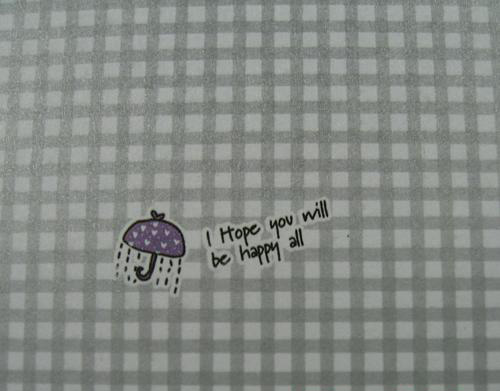 I Hope you will
be happy all